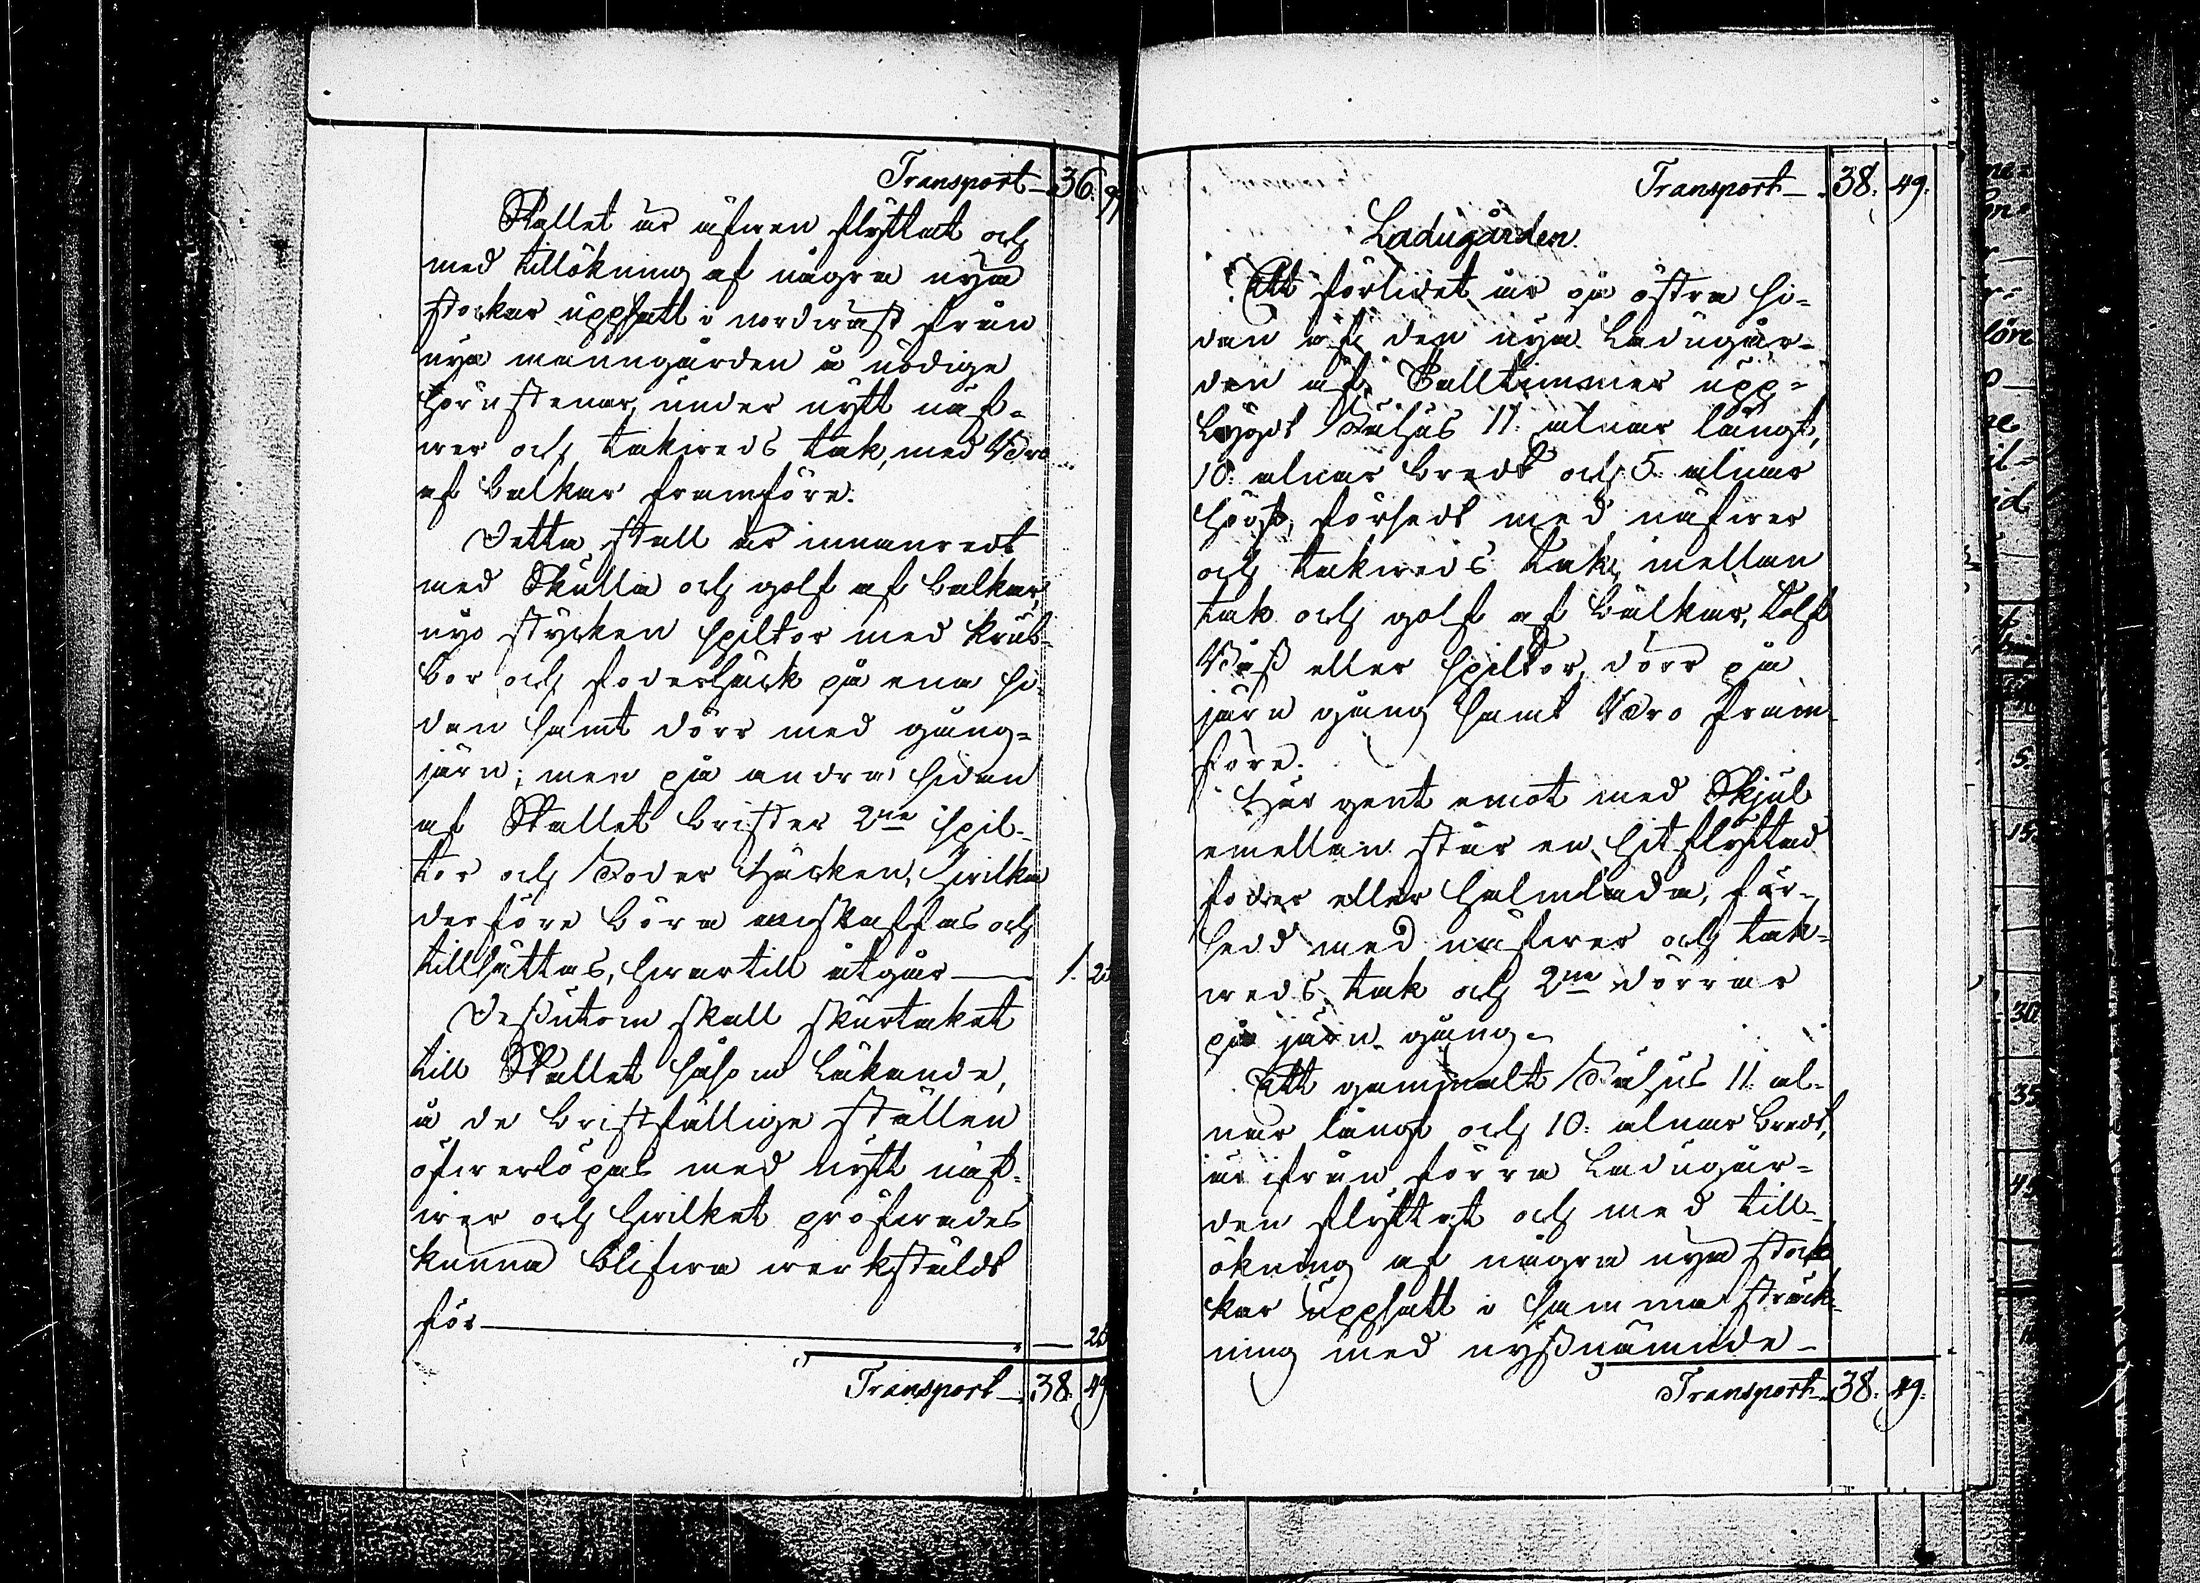 Transport 36. 99
Stallet är äfwen flyttat och
med tillökning af några nya
stockar uppsatt i nordwäst från
nya manngården å nödige
hörnstenar, under nytt näf-
wer och takweds tak, med Bro
af balkar framföre.
Detta stall är innanredt
med Skulla och golf af balkar,
nyo stycken spiltor med krub-
bor och foderhäck på ena si-
dan samt dörr med gång-
järn; men på andra sidan
af Stallet brister 2ne spil-
tor och Foder häcken, hwilka
derföre böra anskaffas och
tillsättas, hwartill åtgår 1. 25
Dessutom skall skurtaket
till Stallet såsom läkande,
å de bristfällige ställen
öfwerlöpas med nytt näf-
wer och hwilket pröfwades
kunna blifwa werkställdt
för — 25
Transport 38. 49
Transport 38. 49.
Ladugården.
Ett förtidet är på östra si-
dan af den nya Ladugår-
den af Talltimmer upp-
bygdt Fähus 11. alnar långt,
10. alnar bredt och 5. alnar
högt, försedt med näfwer
och takweds tak, mellan
tak och golf af balkar, tolf
Bås eller spiltor, dörr på
järn gång samt Bro fram-
före.
Här gent emot med Skjul
emellan står en hitflyttad
foder eller halmlada, för-
sedd med näfwer och tak-
weds tak och 2ne dörrar
på järn gång.
Ett gammalt Fähus 11. al-
nar långt och 10. alnar bredt,
är ifrån förra Ladugår-
den flyttat och med till-
ökning af några nya stock-
kar uppsatt i samma sträck-
ning med nyssnämnde
Transport 38. 49.